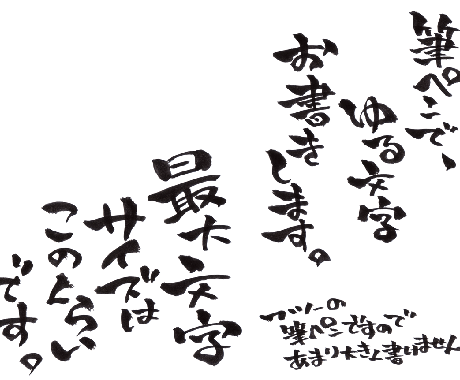 筆ペンで、
ゆる文字
お書きします。
最大文字
サイズは
このくらい
です。
フツーの
筆ペンですので
あまり大きく書けません